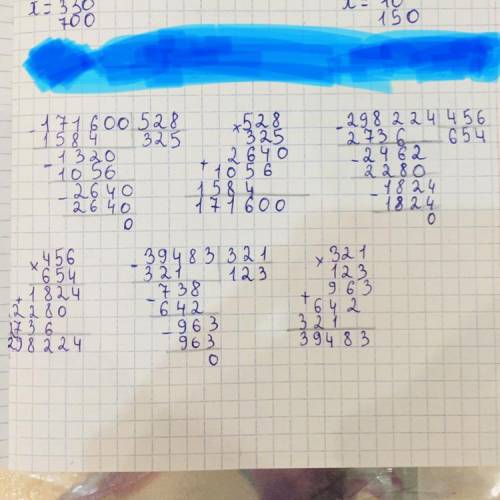 x = 330
700
x = 10
150
-171600 528
1584 325
-1320
1056
-2640
2640
0
×528
325
+2640
1056
1584
171600
-298224 456
2736 654
-2462
2280
-1824
1824
0
×456
654
+1824
2280
2736
298224
-39483 321
321 123
-738
642
-963
963
0
×321
123
+963
642
321
39483